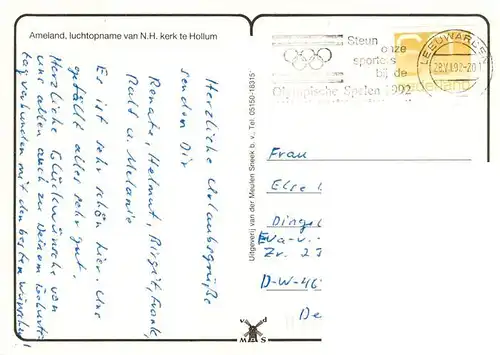 Ameland, luchtopname van N.H. kerk te Hollum
Herzliche Urlaubsgrüße
senden Dir
Renate, Helmut, Birgit, Frank,
Ralf u. Melanie
Es ist sehr schön hier. Uns
gefällt alles sehr gut.
Herzliche Glückwünsche von
uns allen auch zu Deinem Geburts-
tag verbunden mit den besten Wünschen!
Uitgeverij van der Meulen Sneek b.v., Tel. 05150-18315
v d
M S
Steun
onze
sporters
bij de
Olympische Spelen 1992
LEEUWARDEN
Nederland
Frau
Else
Dingel
Eva-v.
Zr. 2
D-W-46
De